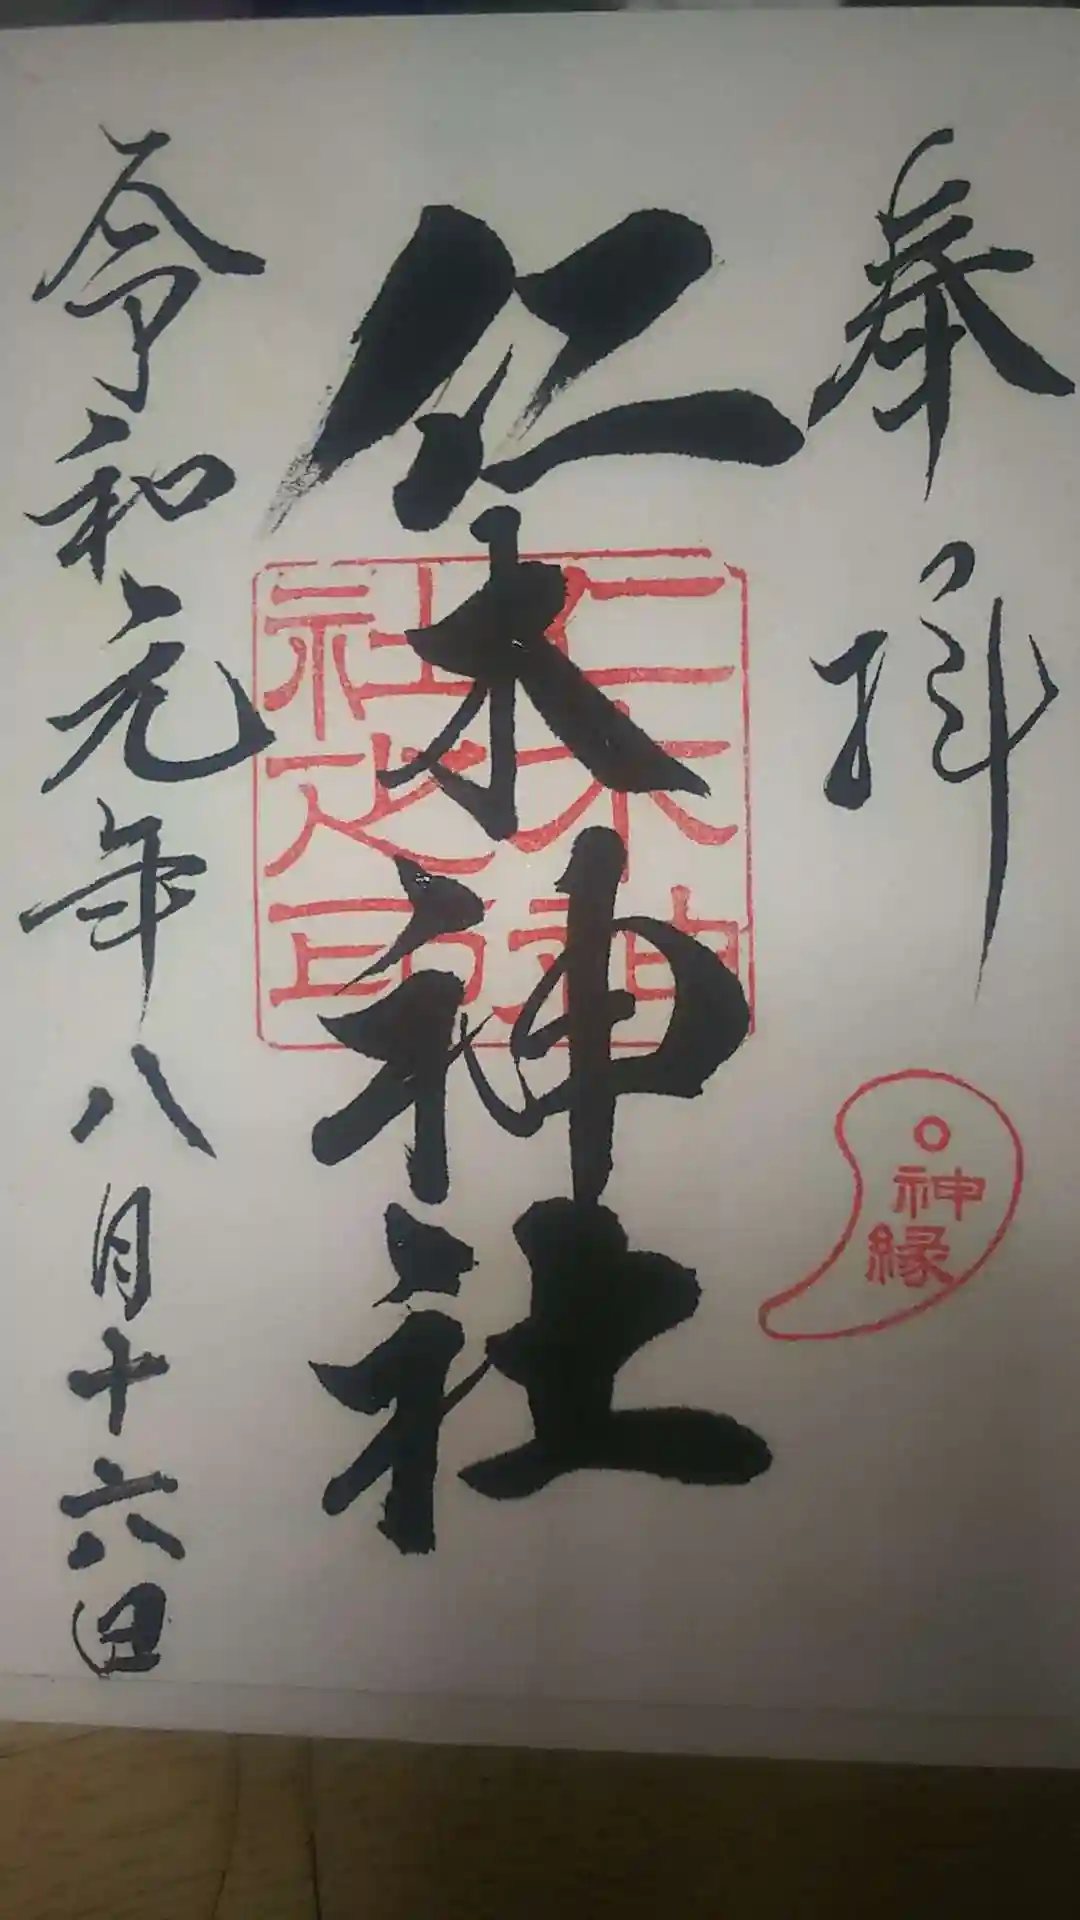 奉拝
仁木神社
仁木神
社之印
神縁
令和元年八月十六日